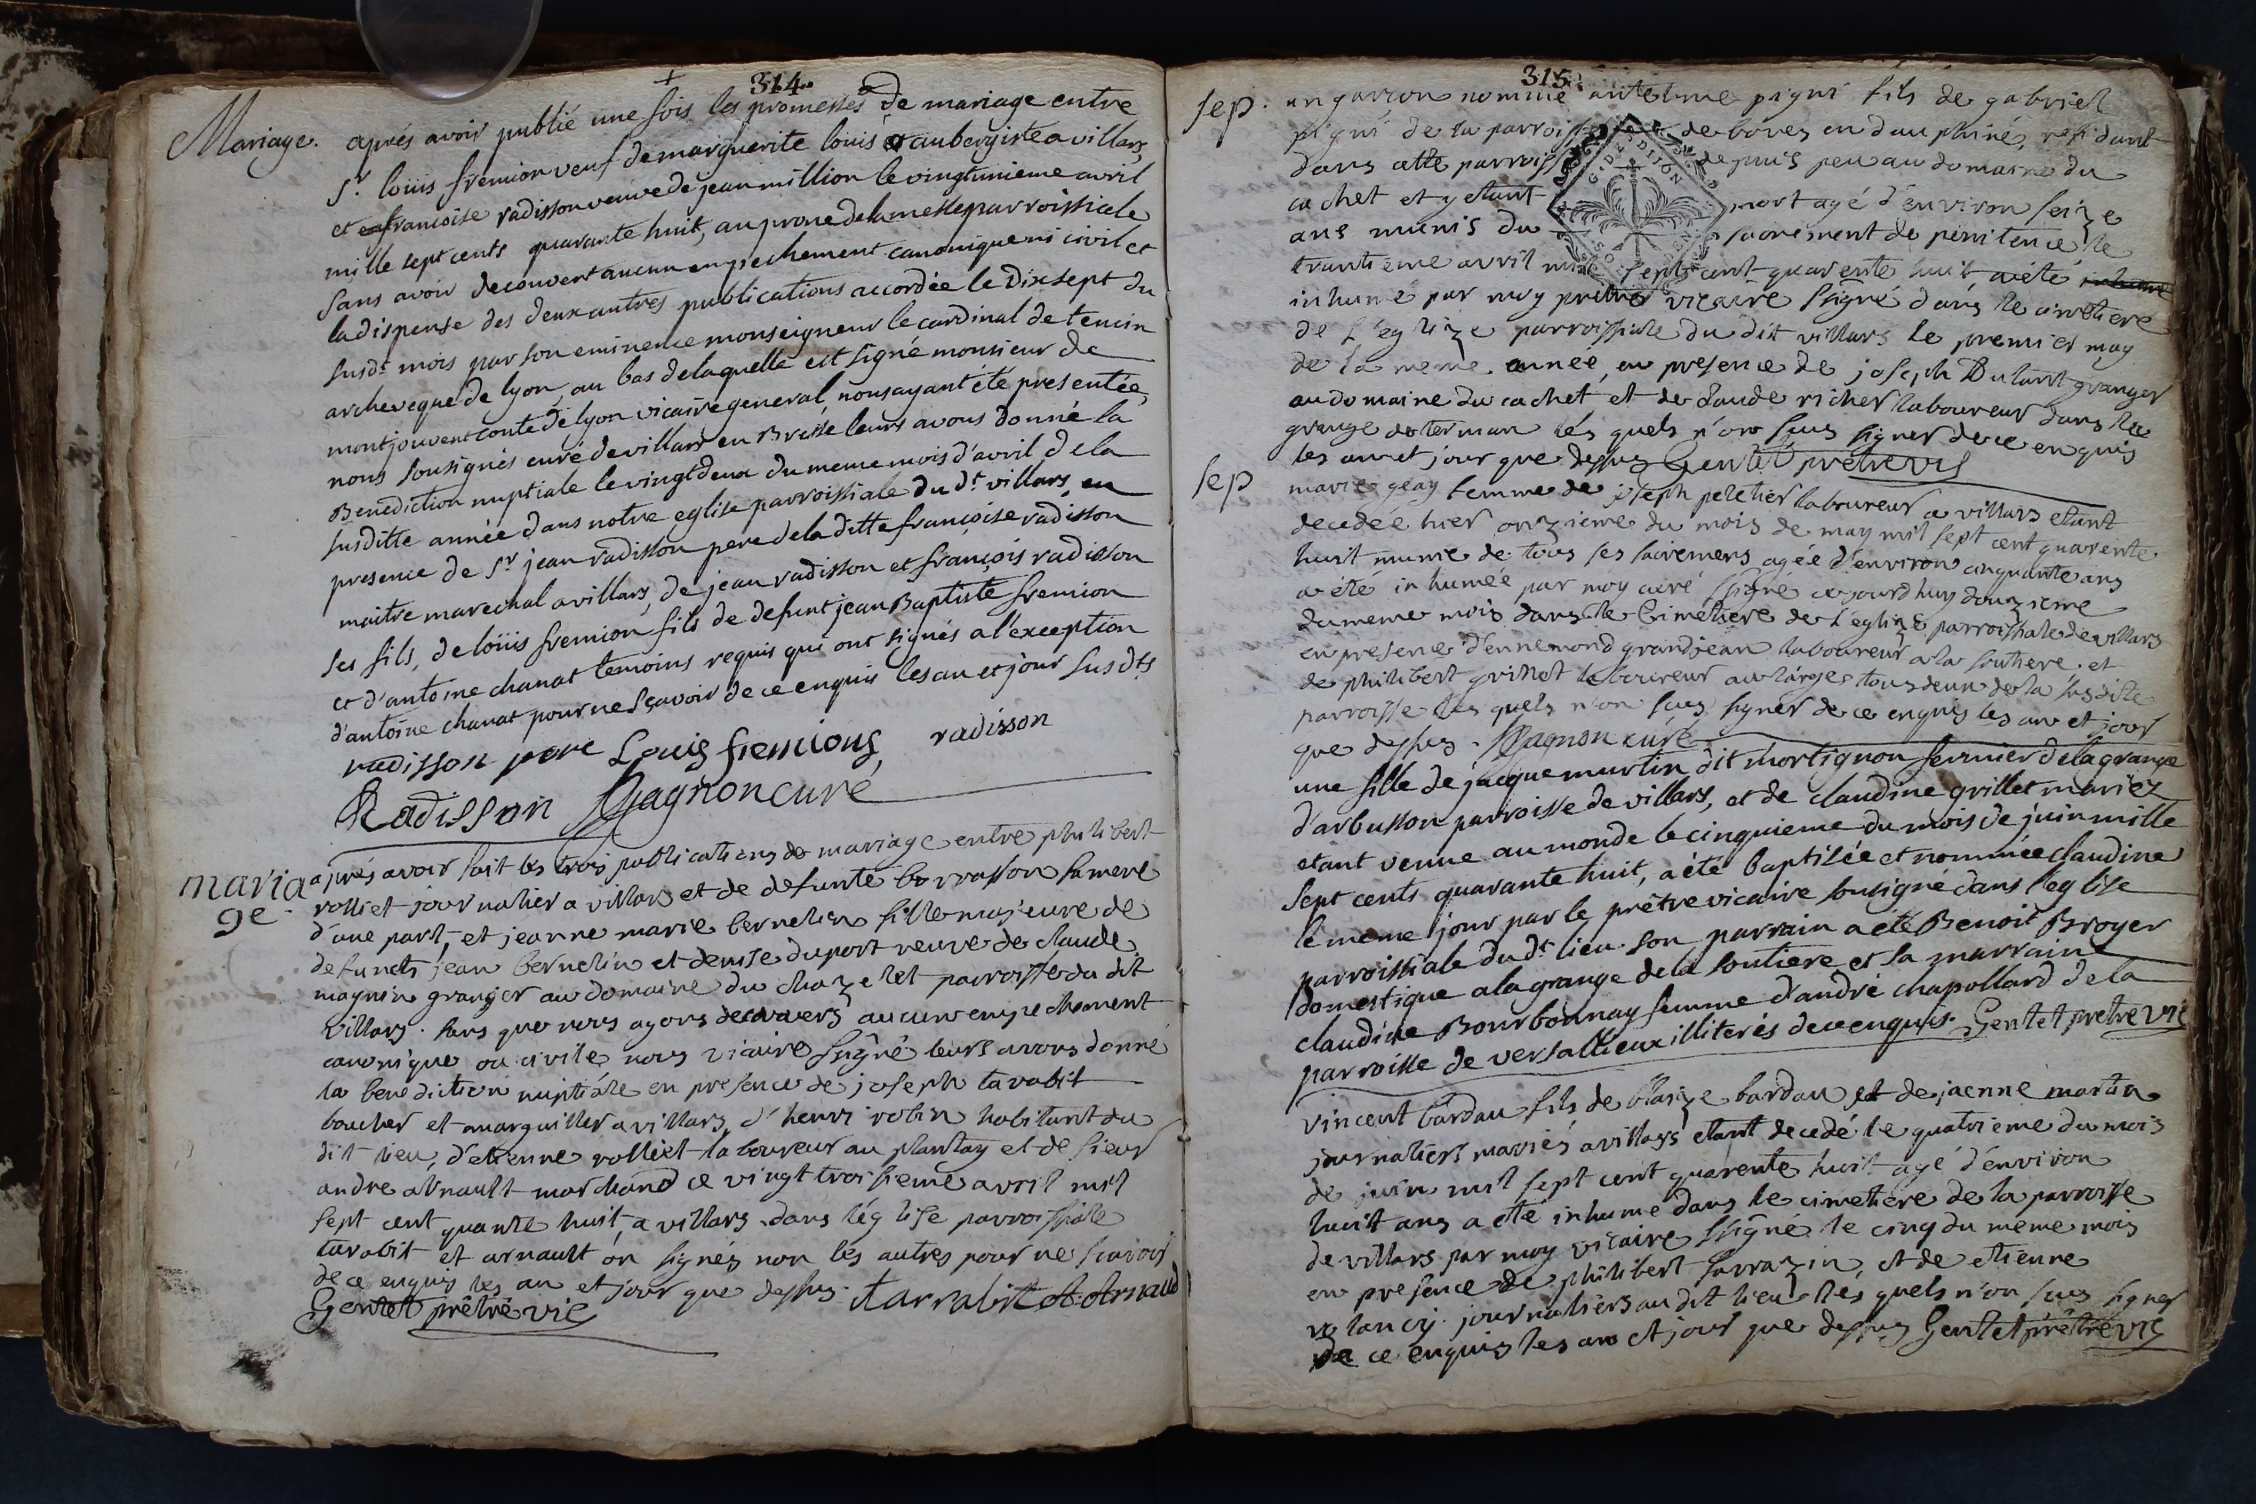 314.
Mariage. aprés avoir publié une fois les promesses de mariage entre
Sr. loüis fremion veuf de marguerite louis aubergiste a villars
et francoise radisson veuve de jean million le vingtunieme avril
mille sept cents quarante huit, au prone de la messe parroissiale
sans avoir decouvert aucun empechement canonique ni civil et
la dispense des deux autres publications accordée le Dixsept du
susdt. mois par son eminence monseigneur le cardinal de tencin
archeveque de lyon, au bas de laquelle est signé monsieur de
montjouvent conte de lyon vicaire general, nous ayant été presentée,
nous sousignés curé de villars en Bresse leurs avons donné la
Benediction nuptiale le vingtdeux du meme mois d'avril de la
susditte année dans notre eglise parroissiale du dt. villars, en
presence de Sr jean radisson pere de la ditte françoise radisson
maitre marechal a villars, de jean radisson et françois radisson
ses fils, de loüis fremion fils de defunt jean Baptiste fremion
et d'antoine chanat temoins requis qui ont signés a l'exception
d'antoine chanat pour ne sçavoir de ce enquis les an et jour susdts
radisson pere Louis fremions radisson
Radisson Magnon curé
maria
ge. aprés avoir fait les trois publications de mariage entre philibert
rolliet journalier a villars et de defunte borrasson sa mere
d'une part, et jeanne marie bernelin fille majeure de
defuncts jean bernelin et denise duport veuve de claude
magnin granger au domaine du chazelet parroisse du dit
villars. sans que nous ayons decouvers aucun empechement
canonique ou civile nous vicaire ssigné leurs avons donné
la benediction nuptiale en presence de joseph tarabit
boucher et marguillier a villars, d'henri robin habitant du
dit lieu, d'etienne rolliet laboureur au plantay et de sieur
andre arnault marchand ce vingt troisieme avril mil
sept cent quante huit, a villars dans léglise parroissiale
tarabit et arnault on signés non les autres pour ne scavoir
de ce enquis les an et jour que dessus. tarrabit A. Arnaud
Gentet prêtre vic
315.
sep. un garcon nommé antelme pigni fils de gabriel
pigni de la parroisse de boves en dauphiné, residant
dans cette parroisse depuis peu au domaine du
cachet et y etant mort agé d'environ seize
G. D. DIJON
ans munis du sacrement de penitence le
trantieme avril mil sept cent quarente huit a été inhumé
inhumé par moy prêtre vicaire ssigné dans le cimetiere
de l'eglize parroissiale du dit villars le premier may
de la meme année, en presence de joseph Dutant granger
au domaine du cachet et de claude richer laboureur dans la
grange de terman les quels n'on sus signer de ce enquis
les an et jour que dessus Gentet prêtre vic
sep marie geay femme de joseph peletier laboureur a villars etant
decedée hier onzieme du mois de may mil sept cent quarente
huit munie de tous ses sacremens agée d'environ cinquante ans
a été inhumée par moy curé ssigné aujourdhuy douzieme
du meme mois dans le cimetiere de l'eglize parroissiale de villars
en presence d'ennemond grandjean laboureur a la soutiere et
de philibert grillet laboureur au large tous deux de la susdite
parroisse les quels n'on sus signer de ce enquis les an et jour
que dessus. Magnon curé
une fille de jacque martin dit mortignon fermier de la grange
d'arbusson parroisse de villars, et de claudine grillet mariéz
etant venue au monde le cinquieme du mois de juin mille
sept cents quarante huit, a été baptisée et nommée claudine
le meme jour par le prêtre vicaire sousigné dans l'eglise
parroissiale du dt. lieu. son parrain a été Benoit Broyer
domestique a la grange de la soutiere et sa marraine
claudine Bourbonnay femme d'andré chapollard de la
parroisse de versallieux illiterés de ce enquis. Gentet pretre vic
vincent bardau fils de blaize bardau et de jaenne martin
journaliers mariés a villars etant decedé le quatrieme du mois
de juin mil sept cent quarente huit agé d'environ
huit ans a été inhumé dans le cimetiére de la parroisse
de villars par moy vicaire ssigné le cinq du meme mois
en presence de philibert sarrazin, et de etienne
volancy journaliers au dit lieu les quels n'on sus signer
de ce enquis les an et jour que dessus Gentet prêtre vic